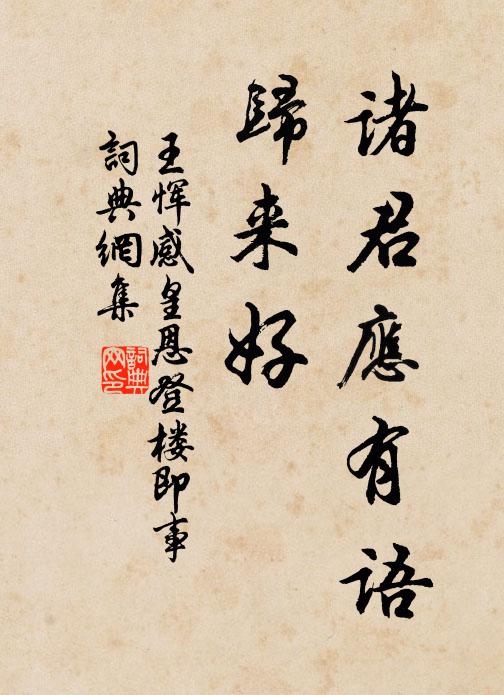 諸君應有語
歸来好
王惲感皇恩登楼即事
詞典網集
詞典网印